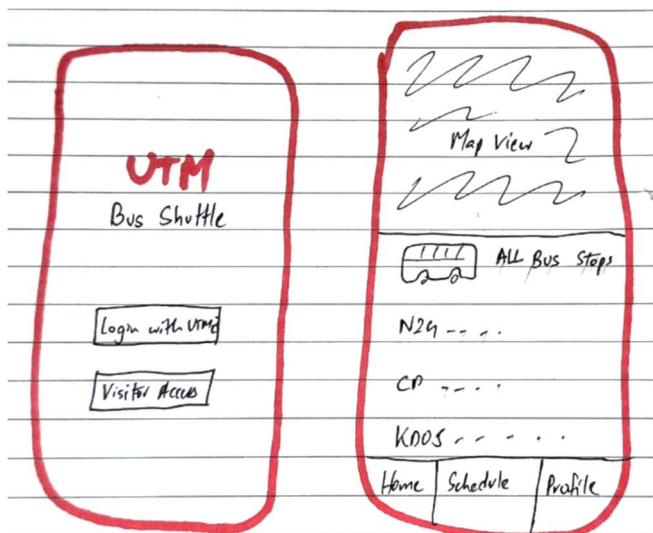 UTM
Bus Shuttle
Login with UTMID
Visitor Access
Map View
ALL Bus Stops
N24
CP
KDOJ
Home Schedule Profile